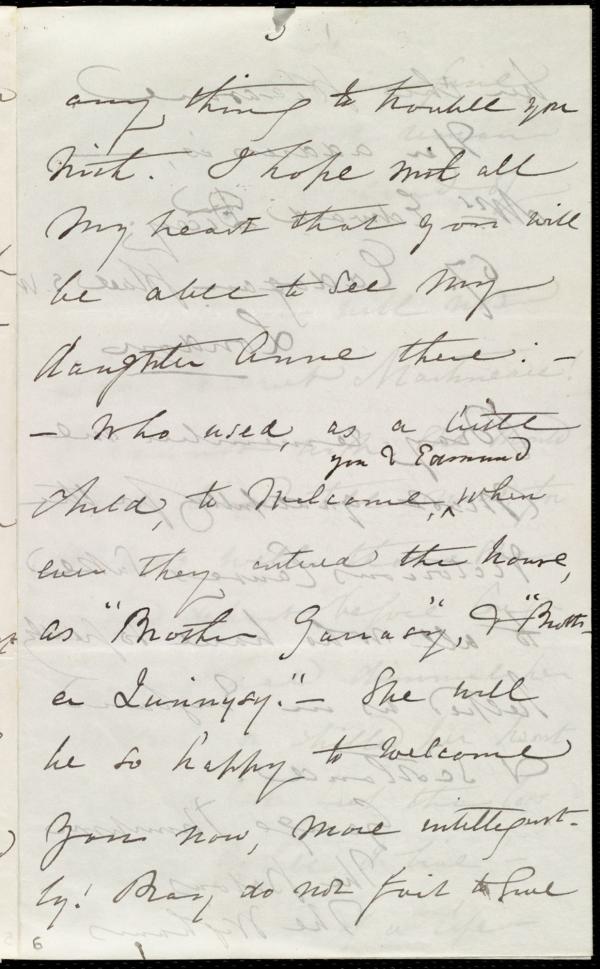 5
any thing to trouble you
with. I hope with all
my heart that you will
be able to see my
daughter Anne there: -
- who used, as a little
you & Edmund
child, to welcome, ^ when
ever they entered the house,
as "Brother Garrasy", & "Broth-
er Quinnysy." - She will
be so happy to welcome
you now, more intelligent-
ly! Pray, do not fail to give
6